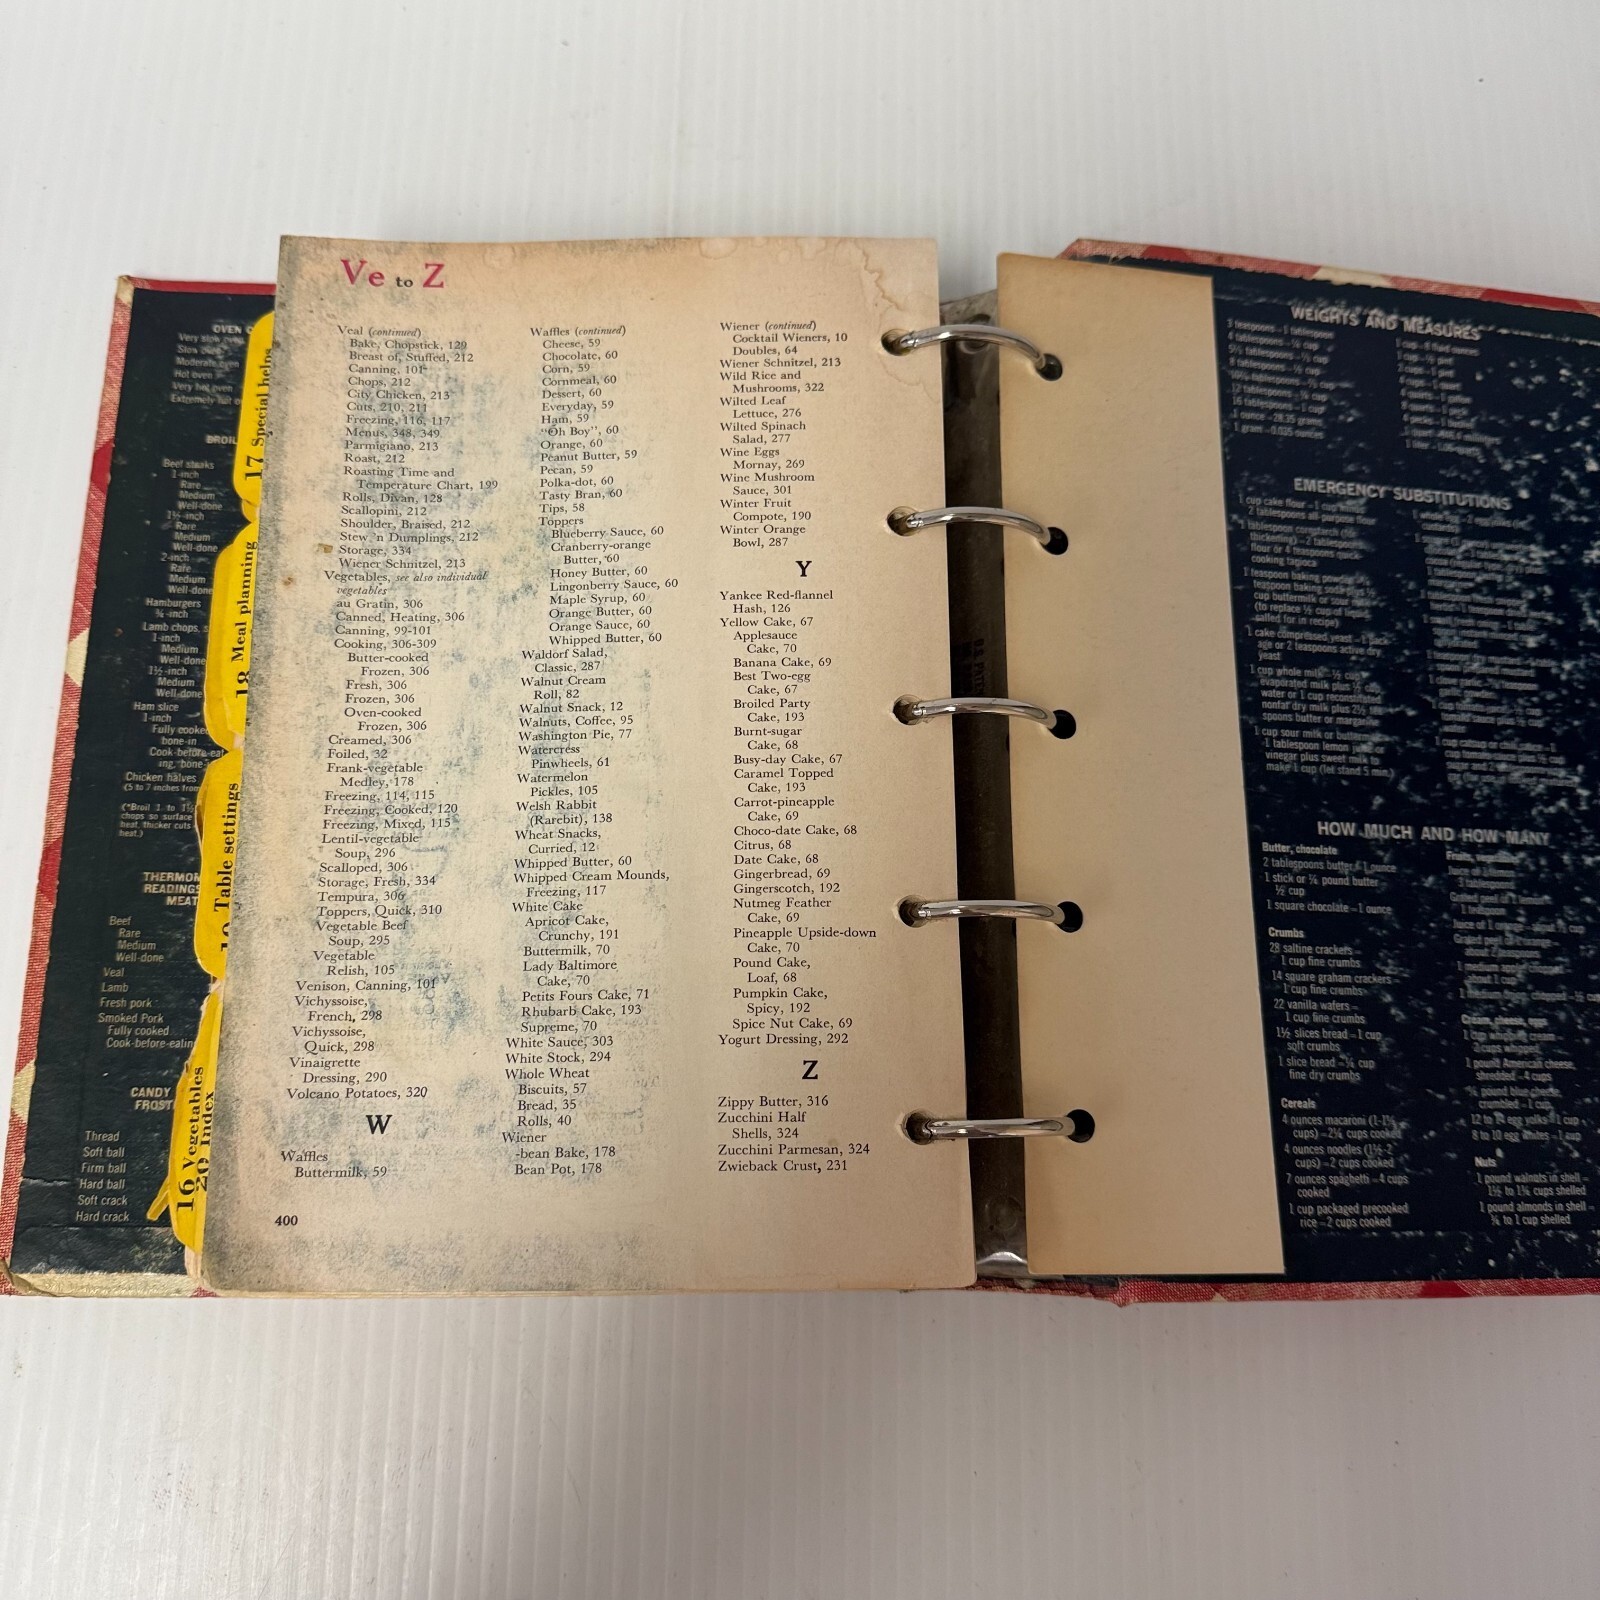 OVEN
Very slow oven
Slow oven
Moderate oven
Hot oven
Very hot oven
Extremely hot
BROIL
Beef steaks
1-inch
Rare
Medium
Well-done
1½-inch
Rare
Medium
Well-done
2-inch
Rare
Medium
Well-done
Hamburgers
¾-inch
Lamb chops,
1-inch
Medium
Well-done
1½-inch
Medium
Well-done
Ham slice
1-inch
Fully cooked
bone-in
Cook-before-eat
ing, bone-
Chicken halves
(5 to 7 inches from
(*Broil 1 to 1½
chops so surface
heat, thicker cuts
heat.)
THERMOM
READINGS
MEAT
Beef
Rare
Medium
Well-done
Veal
Lamb
Fresh pork
Smoked Pork
Fully cooked
Cook-before-eatin
CANDY
FROST
Thread
Soft ball
Firm ball
Hard ball
Soft crack
Hard crack
17 Special helps
18 Meal planning
19 Table settings
16 Vegetables
20 Index
Ve to Z
Veal (continued)
Bake, Chopstick, 129
Breast of, Stuffed, 212
Canning, 101
Chops, 212
City Chicken, 213
Cuts, 210, 211
Freezing, 116, 117
Menus, 348, 349
Parmigiano, 213
Roast, 212
Roasting Time and
Temperature Chart, 199
Rolls, Divan, 128
Scallopini, 212
Shoulder, Braised, 212
Stew 'n Dumplings, 212
Storage, 334
Wiener Schnitzel, 213
Vegetables, see also individual
vegetables
au Gratin, 306
Canned, Heating, 306
Canning, 99-101
Cooking, 306-309
Butter-cooked
Frozen, 306
Fresh, 306
Frozen, 306
Oven-cooked
Frozen, 306
Creamed, 306
Foiled, 32
Frank-vegetable
Medley, 178
Freezing, 114, 115
Freezing, Cooked, 120
Freezing, Mixed, 115
Lentil-vegetable
Soup, 296
Scalloped, 306
Storage, Fresh, 334
Tempura, 306
Toppers, Quick, 310
Vegetable Beef
Soup, 295
Vegetable
Relish, 105
Venison, Canning, 101
Vichyssoise,
French, 298
Vichyssoise,
Quick, 298
Vinaigrette
Dressing, 290
Volcano Potatoes, 320
W
Waffles
Buttermilk, 59
400
Waffles (continued)
Cheese, 59
Chocolate, 60
Corn, 59
Cornmeal, 60
Dessert, 60
Everyday, 59
Ham, 59
"Oh Boy", 60
Orange, 60
Peanut Butter, 59
Pecan, 59
Polka-dot, 60
Tasty Bran, 60
Tips, 58
Toppers
Blueberry Sauce, 60
Cranberry-orange
Butter, 60
Honey Butter, 60
Lingonberry Sauce, 60
Maple Syrup, 60
Orange Butter, 60
Orange Sauce, 60
Whipped Butter, 60
Waldorf Salad,
Classic, 287
Walnut Cream
Roll, 82
Walnut Snack, 12
Walnuts, Coffee, 95
Washington Pie, 77
Watercress
Pinwheels, 61
Watermelon
Pickles, 105
Welsh Rabbit
(Rarebit), 138
Wheat Snacks,
Curried, 12
Whipped Butter, 60
Whipped Cream Mounds,
Freezing, 117
White Cake
Apricot Cake,
Crunchy, 191
Buttermilk, 70
Lady Baltimore
Cake, 70
Petits Fours Cake, 71
Rhubarb Cake, 193
Supreme, 70
White Sauce, 303
White Stock, 294
Whole Wheat
Biscuits, 57
Bread, 35
Rolls, 40
Wiener
-bean Bake, 178
Bean Pot, 178
Wiener (continued)
Cocktail Wieners, 10
Doubles, 64
Wiener Schnitzel, 213
Wild Rice and
Mushrooms, 322
Wilted Leaf
Lettuce, 276
Wilted Spinach
Salad, 277
Wine Eggs
Mornay, 269
Wine Mushroom
Sauce, 301
Winter Fruit
Compote, 190
Winter Orange
Bowl, 287
Y
Yankee Red-flannel
Hash, 126
Yellow Cake, 67
Applesauce
Cake, 70
Banana Cake, 69
Best Two-egg
Cake, 67
Broiled Party
Cake, 193
Burnt-sugar
Cake, 68
Busy-day Cake, 67
Caramel Topped
Cake, 193
Carrot-pineapple
Cake, 69
Choco-date Cake, 68
Citrus, 68
Date Cake, 68
Gingerbread, 69
Gingerscotch, 192
Nutmeg Feather
Cake, 69
Pineapple Upside-down
Cake, 70
Pound Cake,
Loaf, 68
Pumpkin Cake,
Spicy, 192
Spice Nut Cake, 69
Yogurt Dressing, 292
Z
Zippy Butter, 316
Zucchini Half
Shells, 324
Zucchini Parmesan, 324
Zwieback Crust, 231
WEIGHTS AND MEASURES
3 teaspoons – 1 tablespoon
4 tablespoons – ¼ cup
16 tablespoons – 1 cup
1 ounce – 28.35 grams
1 gram – 0.035 ounces
EMERGENCY SUBSTITUTIONS
1 cup cake flour – 1 cup
2 tablespoons all purpose flour
1 tablespoon cornstarch
thickening) – 2 tablespoons
flour or 4 teaspoons quick
cooking tapioca
1 teaspoon baking powder
teaspoon baking soda plus ½
cup buttermilk or sour
(to replace ½ cup of liquid
called for in recipe)
1 cake compressed yeast – 1 pack
age or 2 teaspoons active dry
yeast
1 cup whole milk – ½ cup
evaporated milk plus ½ cup
water or 1 cup reconstituted
nonfat dry milk plus 2½ tea
spoons butter or margarine
1 cup sour milk or buttermilk
1 tablespoon lemon juice or
vinegar plus sweet milk to
make 1 cup (let stand 5 min.)
HOW MUCH AND HOW MANY
Butter, chocolate
2 tablespoons butter – 1 ounce
1 stick or ¼ pound butter
½ cup
1 square chocolate – 1 ounce
Crumbs
28 saltine crackers –
1 cup fine crumbs
14 square graham crackers –
1 cup fine crumbs
22 vanilla wafers –
1 cup fine crumbs
1½ slices bread – 1 cup
soft crumbs
1 slice bread – ¼ cup
fine dry crumbs
Cereals
4 ounces macaroni (1-1¼
cups) – 2¼ cups cooked
4 ounces noodles (1½-2
cups) – 2 cups cooked
7 ounces spaghetti – 4 cups
cooked
1 cup packaged precooked
rice – 2 cups cooked
Cream, cheese, eggs
1 pound American cheese,
shredded – 4 cups
crumbled – 1 cup
12 to 14 egg yolks – 1 cup
8 to 10 egg whites – 1 cup
Nuts
1 pound walnuts in shell –
1½ to 1¾ cups shelled
1 pound almonds in shell –
¾ to 1 cup shelled